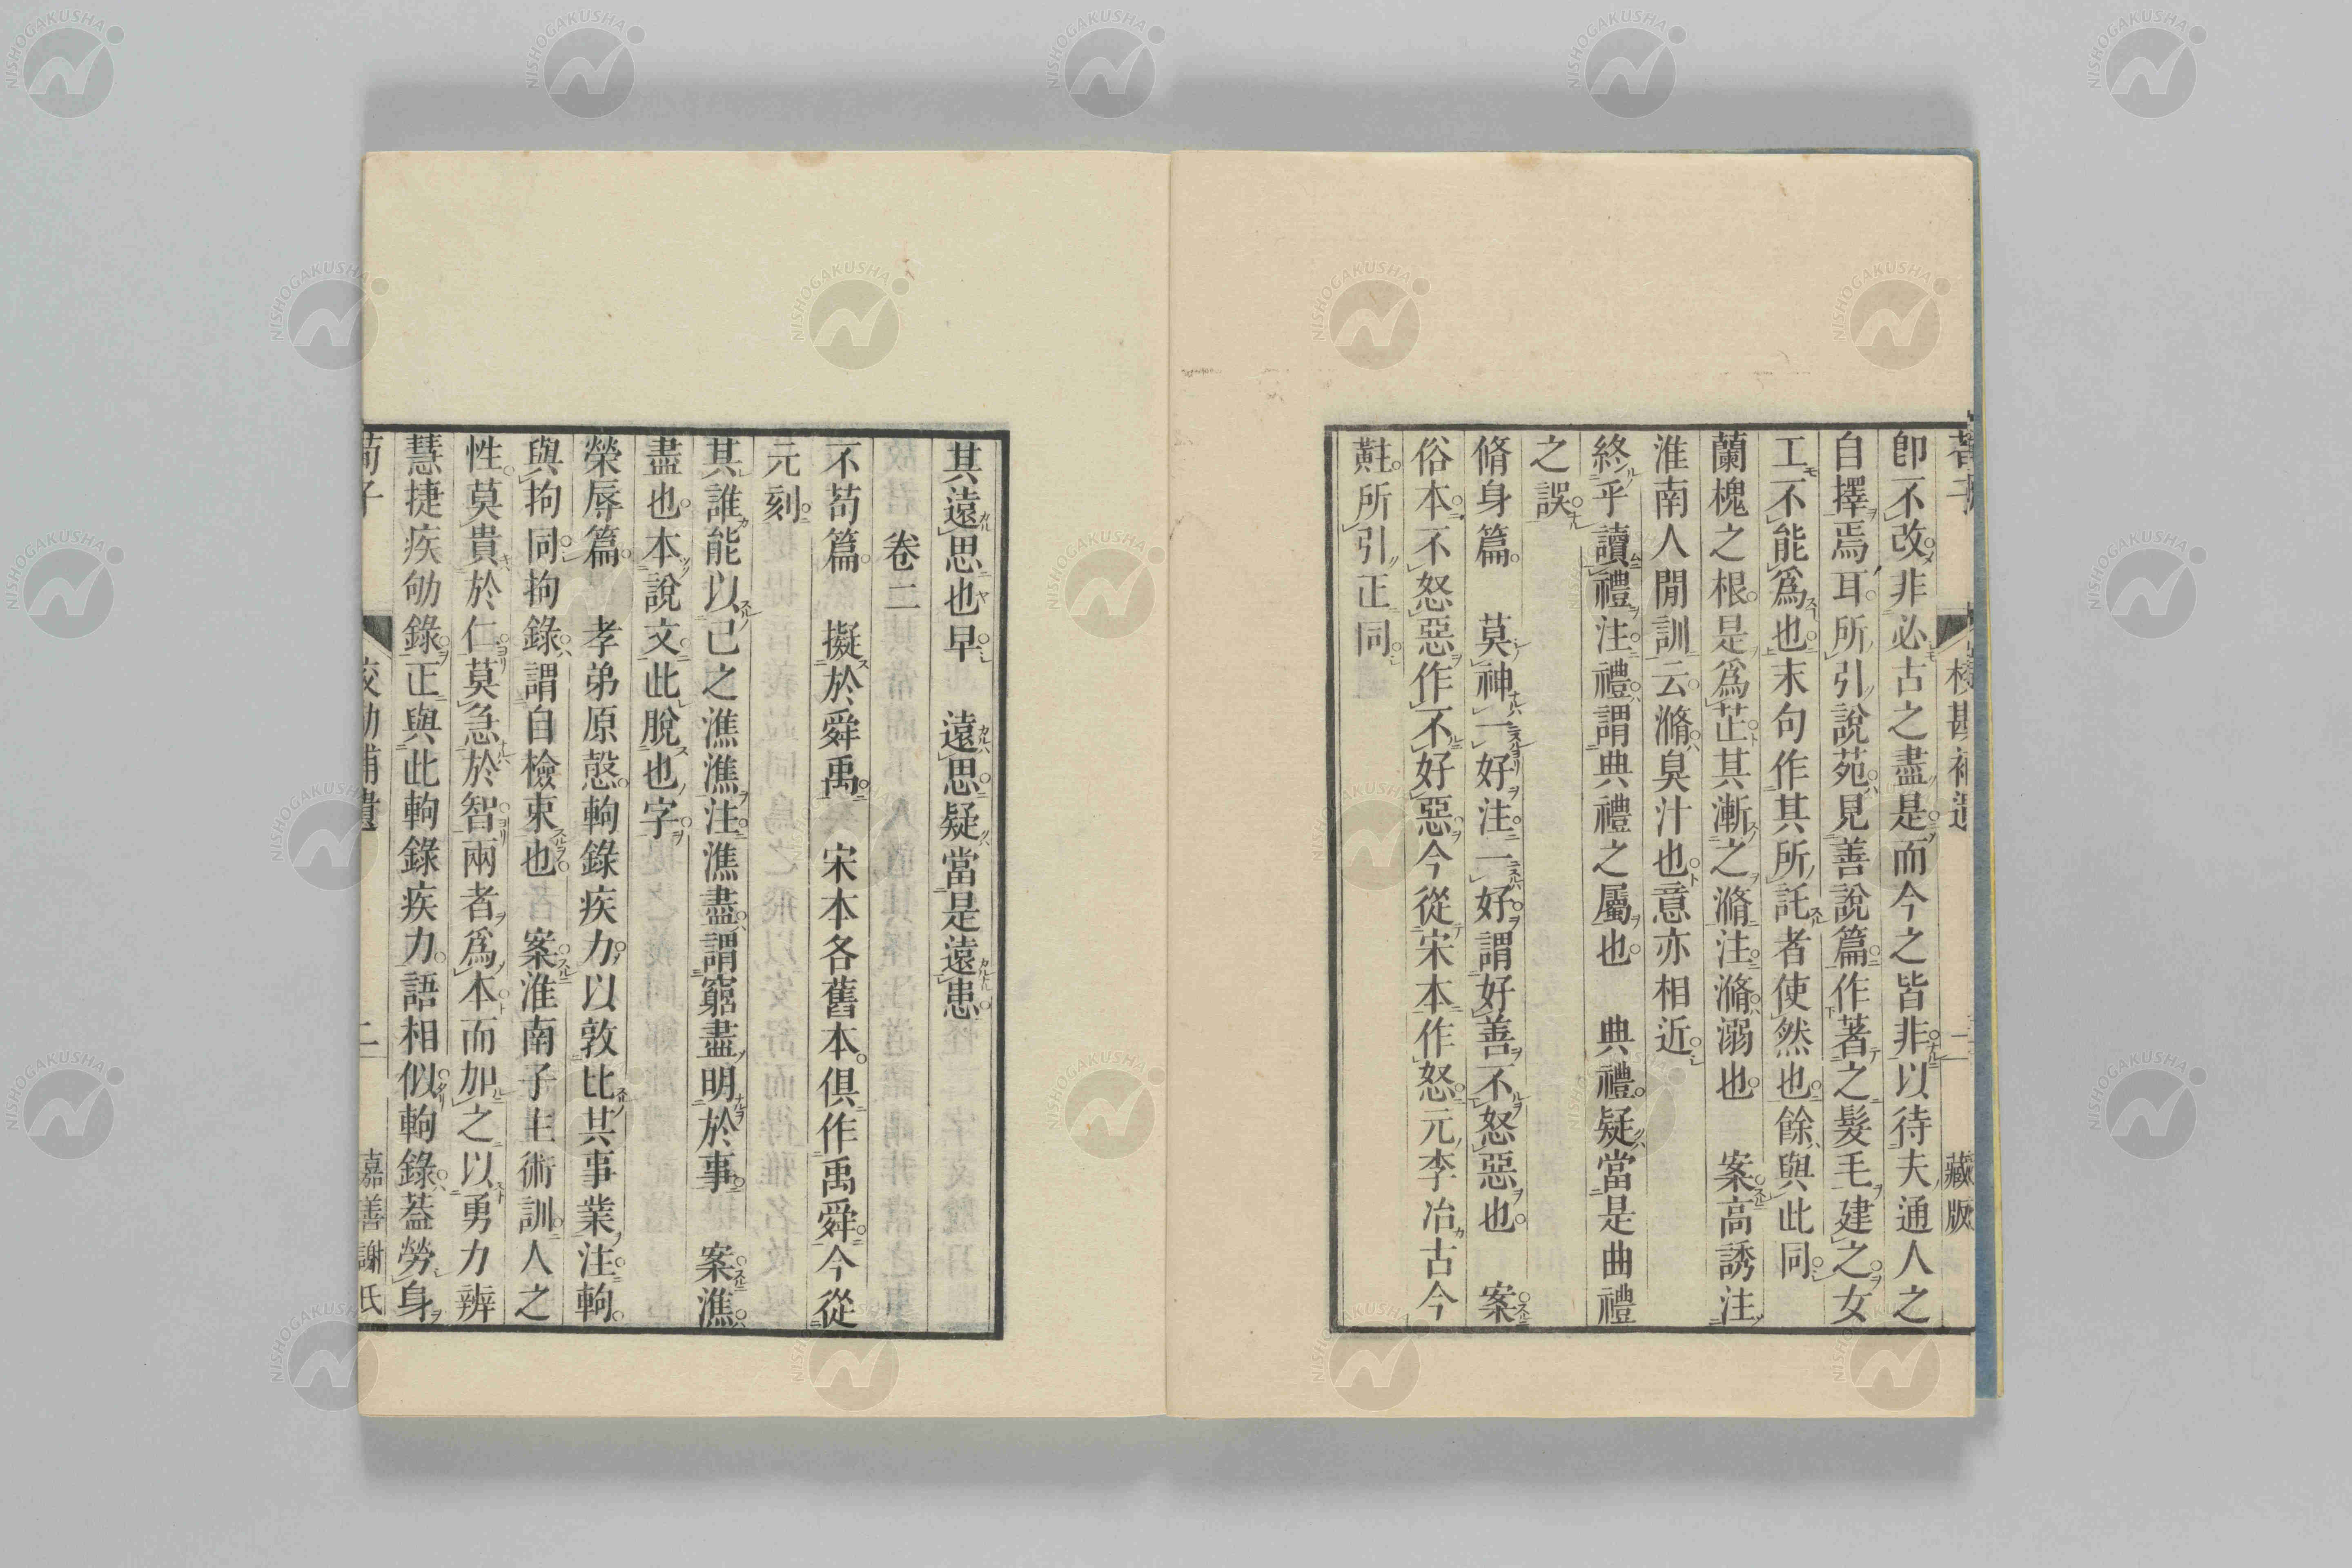 即不改非必古之盡是而今之皆非以待夫通人之
自擇焉耳所引說苑見善說篇作著之髮毛建之女
工不能爲也末句作其所託者使然也餘與此同
蘭槐之根是爲芷其漸之滫注滫溺也　案高誘注
淮南人閒訓云滫臭汁也意亦相近
終乎讀禮注禮謂典禮之屬也　典禮疑當是曲禮
之誤
脩身篇　莫神一好注一好謂好善不怒惡也　案
俗本不怒惡作不好惡今從宋本作怒元李冶古今
黈所引正同
校勘補遺
二
藏版
其遠思也早　遠思疑當是遠患
卷二
不苟篇　擬於舜禹　宋本各舊本俱作禹舜今從
元刻
其誰能以己之潐潐注潐盡謂窮盡明於事　案潐
盡也本說文此脫也字
榮辱篇　孝弟原愨軥錄疾力以敦比其事業注軥
與拘同拘錄謂自檢束也　案淮南子主術訓人之
性莫貴於仁莫急於智兩者爲本而加之以勇力辨
慧捷疾劬錄正與此軥錄疾力語相似軥錄蓋勞身
荀子
校勘補遺
二
嘉善謝氏
NISHOGAKUSHA